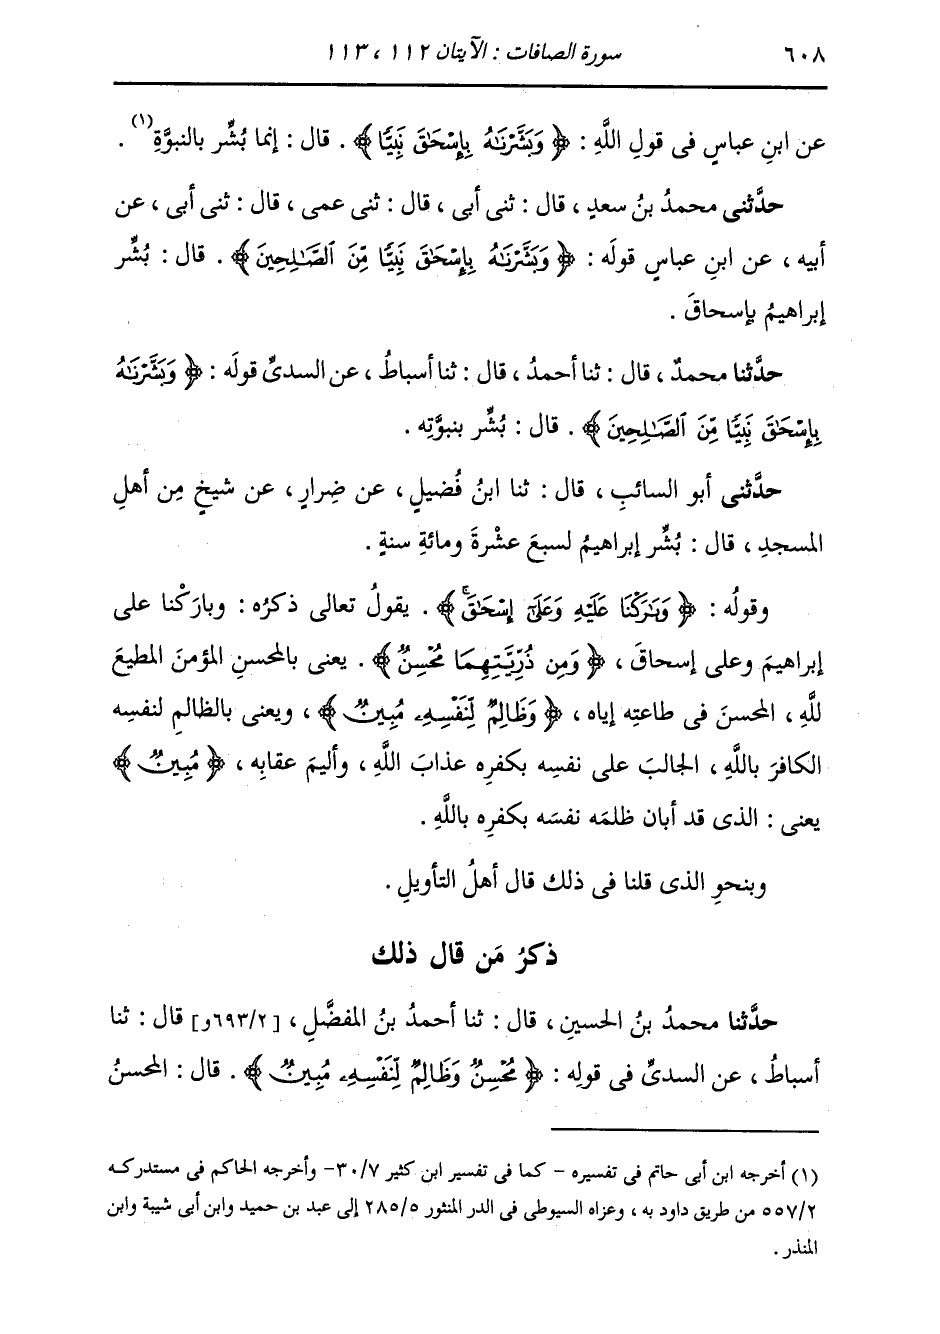 ٦٠٨ سورة الصافات : الآيتان ١١٢ ، ١١٣
عن ابنِ عباسٍ فى قولِ اللَّهِ : ﴿ وَبَشَّرْنَـٰهُ بِإِسْحَـٰقَ نَبِيًّا ﴾ . قال : إنما بُشِّر بالنبوَّةِ(١) .
حدَّثنى محمدُ بنُ سعدٍ ، قال : ثنى أبى ، قال : ثنى عمى ، قال : ثنى أبى ، عن
أبيه ، عن ابنِ عباسٍ قولَه : ﴿ وَبَشَّرْنَـٰهُ بِإِسْحَـٰقَ نَبِيًّا مِّنَ ٱلصَّـٰلِحِينَ ﴾ . قال : بُشِّر
إبراهيمُ بإسحاقَ .
حدَّثنا محمدٌ ، قال : ثنا أحمدُ ، قال : ثنا أسباطُ ، عن السدىِّ قولَه : ﴿ وَبَشَّرْنَـٰهُ
بِإِسْحَـٰقَ نَبِيًّا مِّنَ ٱلصَّـٰلِحِينَ ﴾ . قال : بُشِّر بنبوَّتِه .
حدَّثنى أبو السائبِ ، قال : ثنا ابنُ فُضيلٍ ، عن ضِرارٍ ، عن شيخٍ مِن أهلِ
المسجدِ ، قال : بُشِّر إبراهيمُ لسبعَ عشْرةَ ومائةِ سنةٍ .
وقولُه : ﴿ وَبَـٰرَكْنَا عَلَيْهِ وَعَلَىٰٓ إِسْحَـٰقَۚ ﴾ . يقولُ تعالى ذكرُه : وبارَكْنا على
إبراهيمَ وعلى إسحاقَ ، ﴿ وَمِن ذُرِّيَّتِهِمَا مُحْسِنٌ ﴾ . يعنى بالمحسنِ المؤمنَ المطيعَ
للَّهِ ، المحسنَ فى طاعتِه إياه ، ﴿ وَظَالِمٌ لِّنَفْسِهِۦ مُبِينٌ ﴾ ، ويعنى بالظالمِ لنفسِه
الكافرَ باللَّهِ ، الجالبَ على نفسِه بكفرِه عذابَ اللَّهِ ، وأليمَ عقابِه ، ﴿ مُبِينٌ ﴾
يعنى : الذى قد أبان ظلمَه نفسَه بكفرِه باللَّهِ .
وبنحوِ الذى قلنا فى ذلك قال أهلُ التأويلِ .
ذكرُ مَن قال ذلك
حدَّثنا محمدُ بنُ الحسينِ ، قال : ثنا أحمدُ بنُ المفضَّلِ ، [٦٩٣/٢و] قال : ثنا
أسباطُ ، عن السدىِّ فى قولِه : ﴿ مُحْسِنٌ وَظَالِمٌ لِّنَفْسِهِۦ مُبِينٌ ﴾ . قال : المحسنُ
(١) أخرجه ابن أبى حاتم فى تفسيره - كما فى تفسير ابن كثير ٣٠/٧- وأخرجه الحاكم فى مستدركه
٥٥٧/٢ من طريق داود به ، وعزاه السيوطى فى الدر المنثور ٢٨٥/٥ إلى عبد بن حميد وابن أبى شيبة وابن
المنذر .